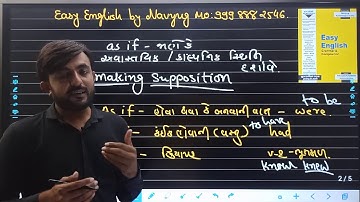 Easy English by Navyug Mo: 999 888 2546.
as if - જાણે કે
અવાસ્તવિક / કાલ્પનિક સ્થિતિ
દર્શાવે
making Supposition
to be
as if - હોવા થવા કે બનવાની વાત - were
to have
કંઈક હોવાની (વસ્તુ) - had
- ક્રિયાપદ v-2 - ભૂતકાળ
know knew
Easy
English
2/5